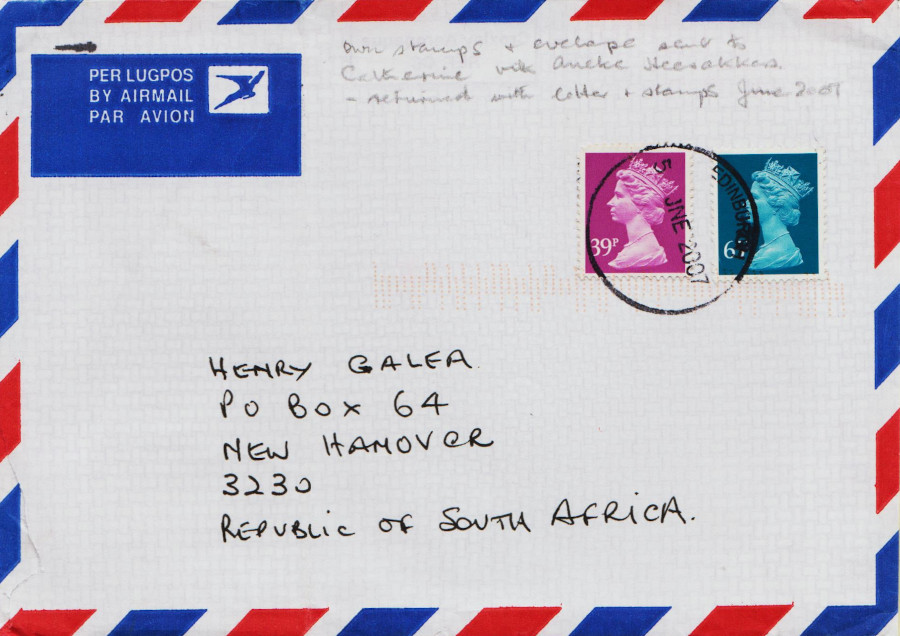 own stamps + envelope sent to
Catherine with Aneke Heesakkers.
- returned with letter + stamps June 2007
PER LUGPOS
BY AIRMAIL
PAR AVION
39P
6
EDINBURGH
5 JNE 2007
HENRY GALEA
PO BOX 64
NEW HANOVER
3230
REPUBLIC OF SOUTH AFRICA.